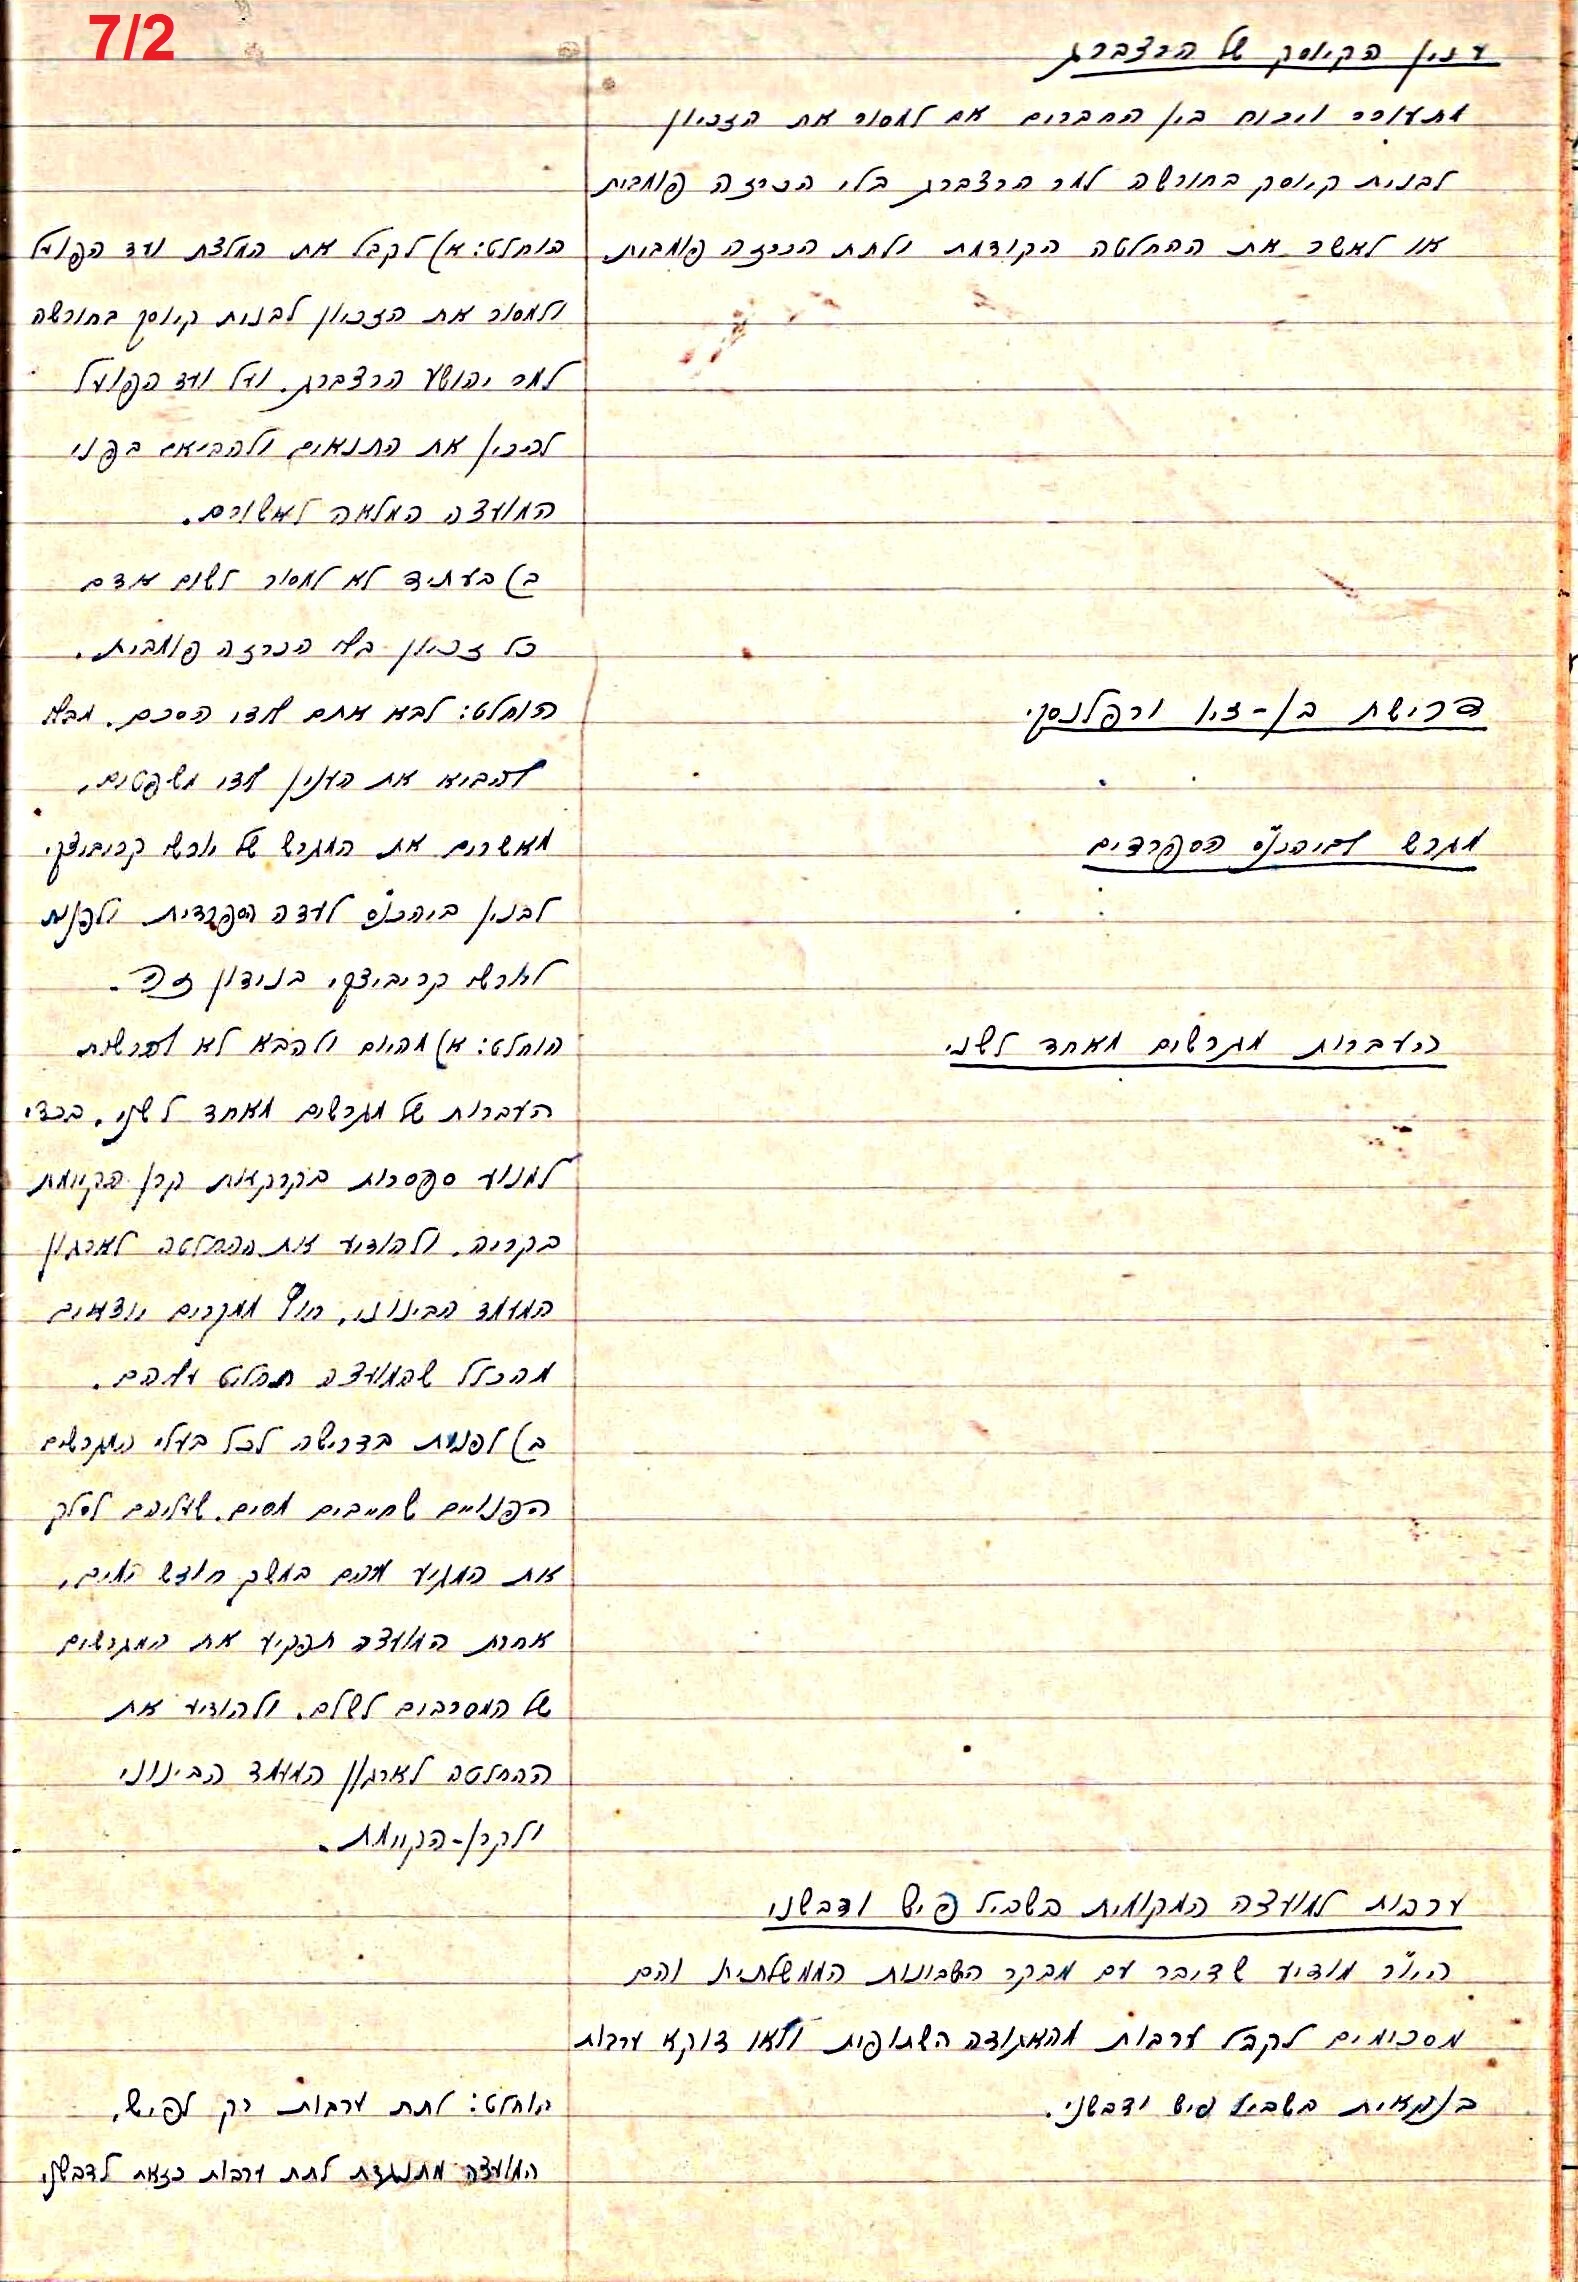 7/2
ענין הקיוסק של הרצברג
מתעורר ויכוח בין החברים אם למסור את הזכיון
לבנית קיוסק בחורשה למר הרצברג בלי הכרזה פומבית
או לאשר את ההחלטה הקודמת ולתת הכרזה פומבית.
הוחלט: א) לקבל את המלצת ועד הפועל
ולמסור את הזכיון לבנית קיוסק בחורשה
למר יהושע הרצברג. ועל ועד הפועל
להכין את התנאים ולהביאם בפני
המועצה המלאה לאשורם.
ב) בעתיד לא למסור לשום אדם
כל זכיון בלי הכרזה פומבית.
דרישת בן-ציון ורפלנסקי
הוחלט: לבא אתם לידי הסכם. מבלי
להביא את הענין לידי משפטים.
מגרש לביהכנ"ס הספרדים
מאשרים את המגרש של
לבנין ביהכנ"ס לעדה הספרדית ולפנות
בנידון זה.
העברות מגרשים מאחד לשני
הוחלט: א) מהיום ולהבא לא להרשות
העברות של מגרשים מאחד לשני. בכדי
למנוע ספסרות בקרקעות קרן הקיימת
בקריה. ולהודיע את ההחלטה לארגון
המעמד הבינוני. חוץ ממקרים יוצאים
מהכלל שהמועצה תחליט עליהם.
ב) לפנות בדרישה לכל בעלי המגרשים
הפנויים שחייבים מסים. שעליהם לסלק
את המגיע מהם במשך חודש ימים,
אחרת המועצה תפקיע את המגרשים
של המסרבים לשלם. ולהודיע את
ההחלטה לארגון המעמד הבינוני
ולקרן-הקיימת.
ערבות למועצה המקומית בשביל פיש ודבשני
היו"ר מודיע שדיבר עם מבקר החשבונות הממשלתית והם
מסכימים לקבל ערבות מהאגודה השתופית ולאו דוקא ערבות
בנקאית בשביל פיש ודבשני.
הוחלט: לתת ערבות רק לפיש,
המועצה מתנגדת לתת ערבות כזאת לדבשני